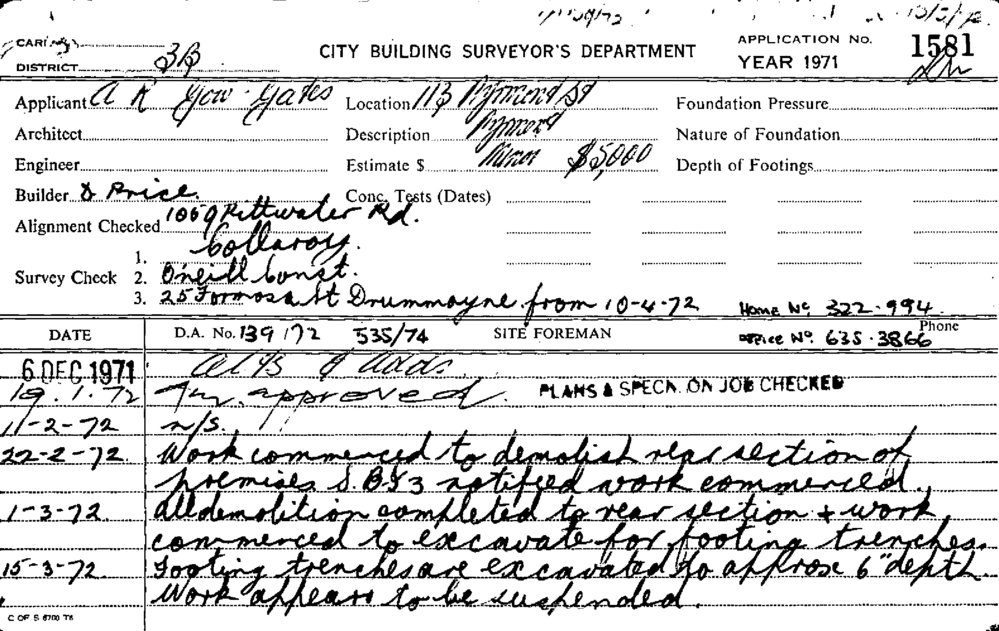 13/3/72
CARD No.
DISTRICT 3B
CITY BUILDING SURVEYOR'S DEPARTMENT
APPLICATION No. 1581
YEAR 1971
Applicant A R Gow-Gates Location 113 Pyrmont St Foundation Pressure
Architect Description Pyrmont Nature of Foundation
Engineer Estimate $ Minor $5,000 Depth of Footings
Builder D Price. Conc. Tests (Dates)
Alignment Checked 1069 Pittwater Rd.
1. Collaroy.
Survey Check 2. O'neill Const.
3. 25 Formosa St Drummoyne from 10-4-72 HOME No 322·994
DATE D.A. No. 139/72 535/74 SITE FOREMAN OFFICE No. 635·3866 Phone
6 DEC 1971 Alts & Adds.
19.1.72 approved. PLANS & SPECN. ON JOB CHECKED
11-2-72 n/s.
22-2-72. Work commenced to demolish rear section of
premises. S.B.I 3 notified work commenced.
1-3-72. All demolition completed to rear section + work
commenced to excavate for footing trenches.
15-3-72. Footing trenches are excavated to approx 6" depth
Work appears to be suspended.
C OF S 8700 T8